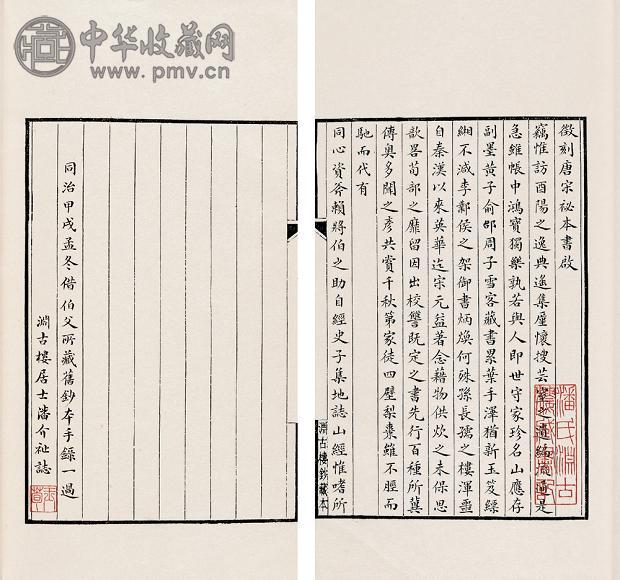 中华收藏网
www.pmv.cn
徵刻唐宋祕本書啟
竊惟訪酉陽之逸典遙集廑懷搜芸室之遺編流通是
急維帳中鴻寶獨樂孰若與人即世守家珍名山應存
副墨黃子俞邰周子雪客藏書累葉手澤猶新玉笈縹
緗不減李鄴侯之架御書炳煥何殊孫長孺之樓渾噩
自秦漢以來英華迄宋元益著念藉物供炊之未保思
歆畧荀部之靡留因出校讐既定之書先行百種所冀
傳奥多聞之彥共賞千秋第家徒四壁梨棗雖不脛而
馳而代有
同心資斧賴將伯之助自經史子集地誌山經惟嗜所
淵古樓鈔藏本
潘氏淵古
同治甲戌孟冬借伯父所藏舊鈔本手錄一過
淵古樓居士潘介祉誌